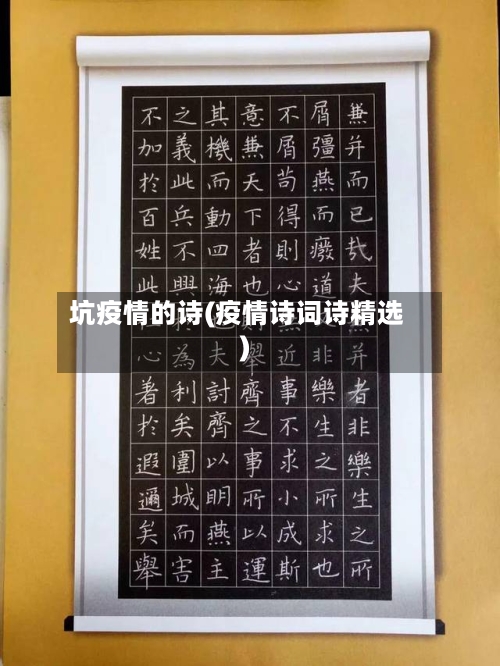 坑疫情的诗(疫情诗词诗精选
)
兼并而已哉夫并者非樂生之所
屑彊燕而廢道非樂生之所求也
不屑苟得則心近事不求小成斯
意兼天下者也舉齊之事所以運
其機而動四海夫討齊以明燕主
之義此兵不興為利矣圍城而害
不加於百姓此心著於遐邇矣舉